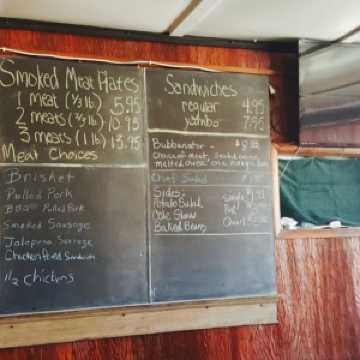 Smoked Meat Plates
1 meat (1/3 lb) 5.95
2 meats (2/3 lb) 10.95
3 meats (1 lb) 13.95
Meat Choices
Brisket
Pulled Pork
Pulled Pork
Smoked Sausage
Jalapeno Sausage
Chicken Fried Sandwich
1/2 chickens
Sandwiches
regular 4.95
yumbo 7.95
Bubbanator
meat,
Chef Salad
Sides:
Potato Salad
Cole Slaw
Baked Beans
Single
Pint
Quart